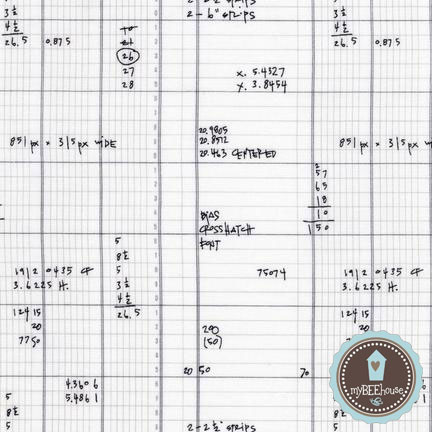 2 - 6" strips
3 ½
4 ½
26.5 0.875
26
27
28
x. 5.4327
y. 3.8454
3 ½
4 ½
26.5 0.875
851 px × 315 px WIDE
20.9805
20.8572
20.463 CENTERED
851 px × 315 px
57
65
18
10
150
BIAS
CROSSHATCH
FONT
5
8½
5
3½
4½
26.5
1912 0435 CF
3.6225 H.
75074
1912 0435 CF
3.6225 H.
124 15
20
7750
200
(50)
124 15
20 50 70
4.3606
5.4861
5
8½
5
2 - 2 ½" strips
myBEEhouse